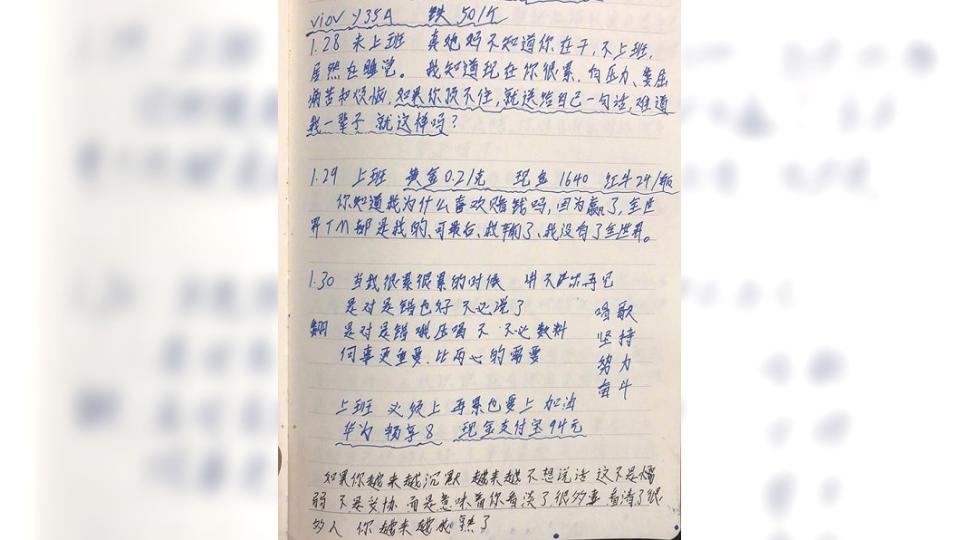 viov y35A 铁 501斤
1.28 未上班 真他妈不知道你在干,不上班,
居然在睡觉。我知道现在你很累,有压力、委屈
痛苦和烦恼,如果你顶不住,就送给自己一句话,难道
我一辈子就这样吗?
1.29 上班 黄金0.21克 现金1640 红牛24/瓶
你知道我为什么喜欢赌钱吗,因为赢了,全世
界TM都是我的,可最后,我输了,我没有了全世界。
1.30 当我很累很累的时候 再见
是对是错也好 不必说了
是对是错 不必
何事更重要,比两心的需要
唱歌
坚持
努力
奋斗
上班 必须上 再累也要上 加油
华为 畅享8 现金支付宝94元
如果你越来越沉默 越来越不想说话 这不是懦
弱 不是妥协 而是意味着你看淡了很多事 看清了很
多人 你越来越成熟了